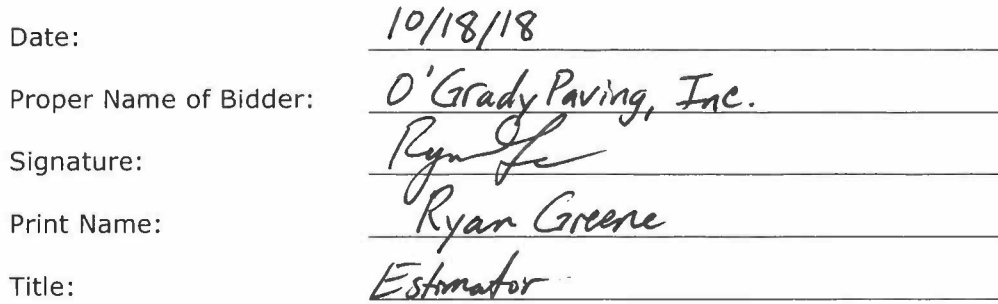 Date: 10/18/18
Proper Name of Bidder: O'Grady Paving, Inc.
Signature: Ryan
Print Name: Ryan Greene
Title: Estimator